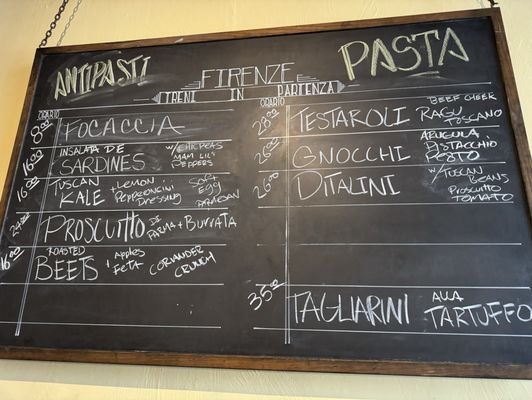 ANTIPASTI
FIRENZE
PASTA
TRENI IN PARTENZA
ORARIO
8.00 FOCACCIA
16.00 INSALATA DE SARDINES w/ CHICKPEAS MAM LIL'S PEPPERS
16.00 TUSCAN KALE + LEMON PEPPERONCINI DRESSING SOFT EGG PARMESAN
24.00 PROSCUITTO DI PARMA + BURRATA
16.00 ROASTED BEETS + APPLES FETA CORIANDER CRUNCH
ORARIO
28.00 TESTAROLI BEEF CHEEK RAGU TOSCANO
26.00 GNOCCHI ARUGULA, PISTACCHIO PESTO
26.00 DITALINI w/ TUSCAN BEANS PROSCUITTO TOMATO
35.00 TAGLIARINI ALLA TARTUFFO